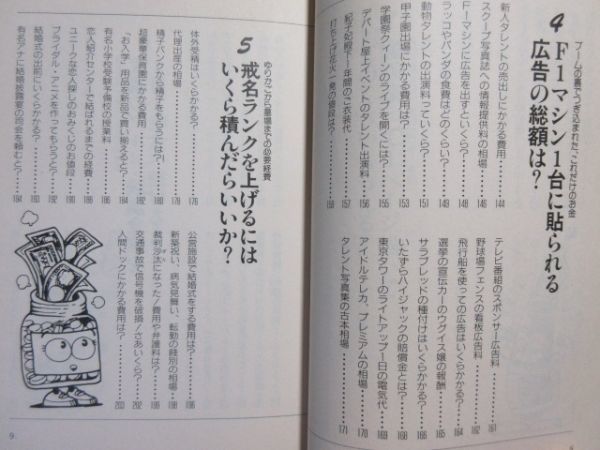 ブームの裏でつぎ込まれた、これだけのお金
4 F1マシン1台に貼られる
広告の総額は?
新人タレントの売出しにかかる費用……144
スクープ写真誌への情報提供料の相場……146
F1マシンに広告を出すといくら?……148
ラッコやパンダの食費はどのくらい?……149
動物タレントの出演料っていくら?……151
甲子園出場にかかる費用は?……153
学園祭クィーンのライブを開くには?……
デパート屋上イベントのタレント出演料……156
紀子妃殿下一年間のご衣装代……157
打ち上げ花火一発の値段は?……
テレビ番組のスポンサー広告料……161
野球場フェンスの看板広告料……162
飛行船を使っての広告はいくらかかる?……164
選挙の宣伝カーのウグイス嬢の報酬……165
サラブレッドの種付けはいくらかかる?……166
いたずらハイジャックの賠償金とは?……168
東京タワーのライトアップ1日の電気代……169
アイドルテレカ、プレミアムの相場……170
タレント写真集の古本相場……171
ゆりかごから墓場までの必要経費
5 戒名ランクを上げるには
いくら積んだらいいか?
体外受精はいくらかかる?……176
代理出産の相場……178
精子バンクから精子をもらうには?……180
超豪華保育園にかかる費用……182
「お入学」用品を新品で買い揃えると?……184
有名小学校受験予備校の授業料……
恋人紹介センターで結ばれるまでの経費……
ユニークな恋人探しのおみくじのお値段……190
ブライダル・アニメを作ってもらうと?……
結婚式の出前にいくらかかる?……
有名アナに結婚披露宴の司会を頼むと?……194
公営施設で結婚式をする費用は?……196
新築祝い、病気見舞い、転勤の餞別の相場……198
裁判沙汰になった!費用や弁護料は?……
交通事故で信号機を破損!さあいくら?……202
人間ドックにかかる費用は?……203
9